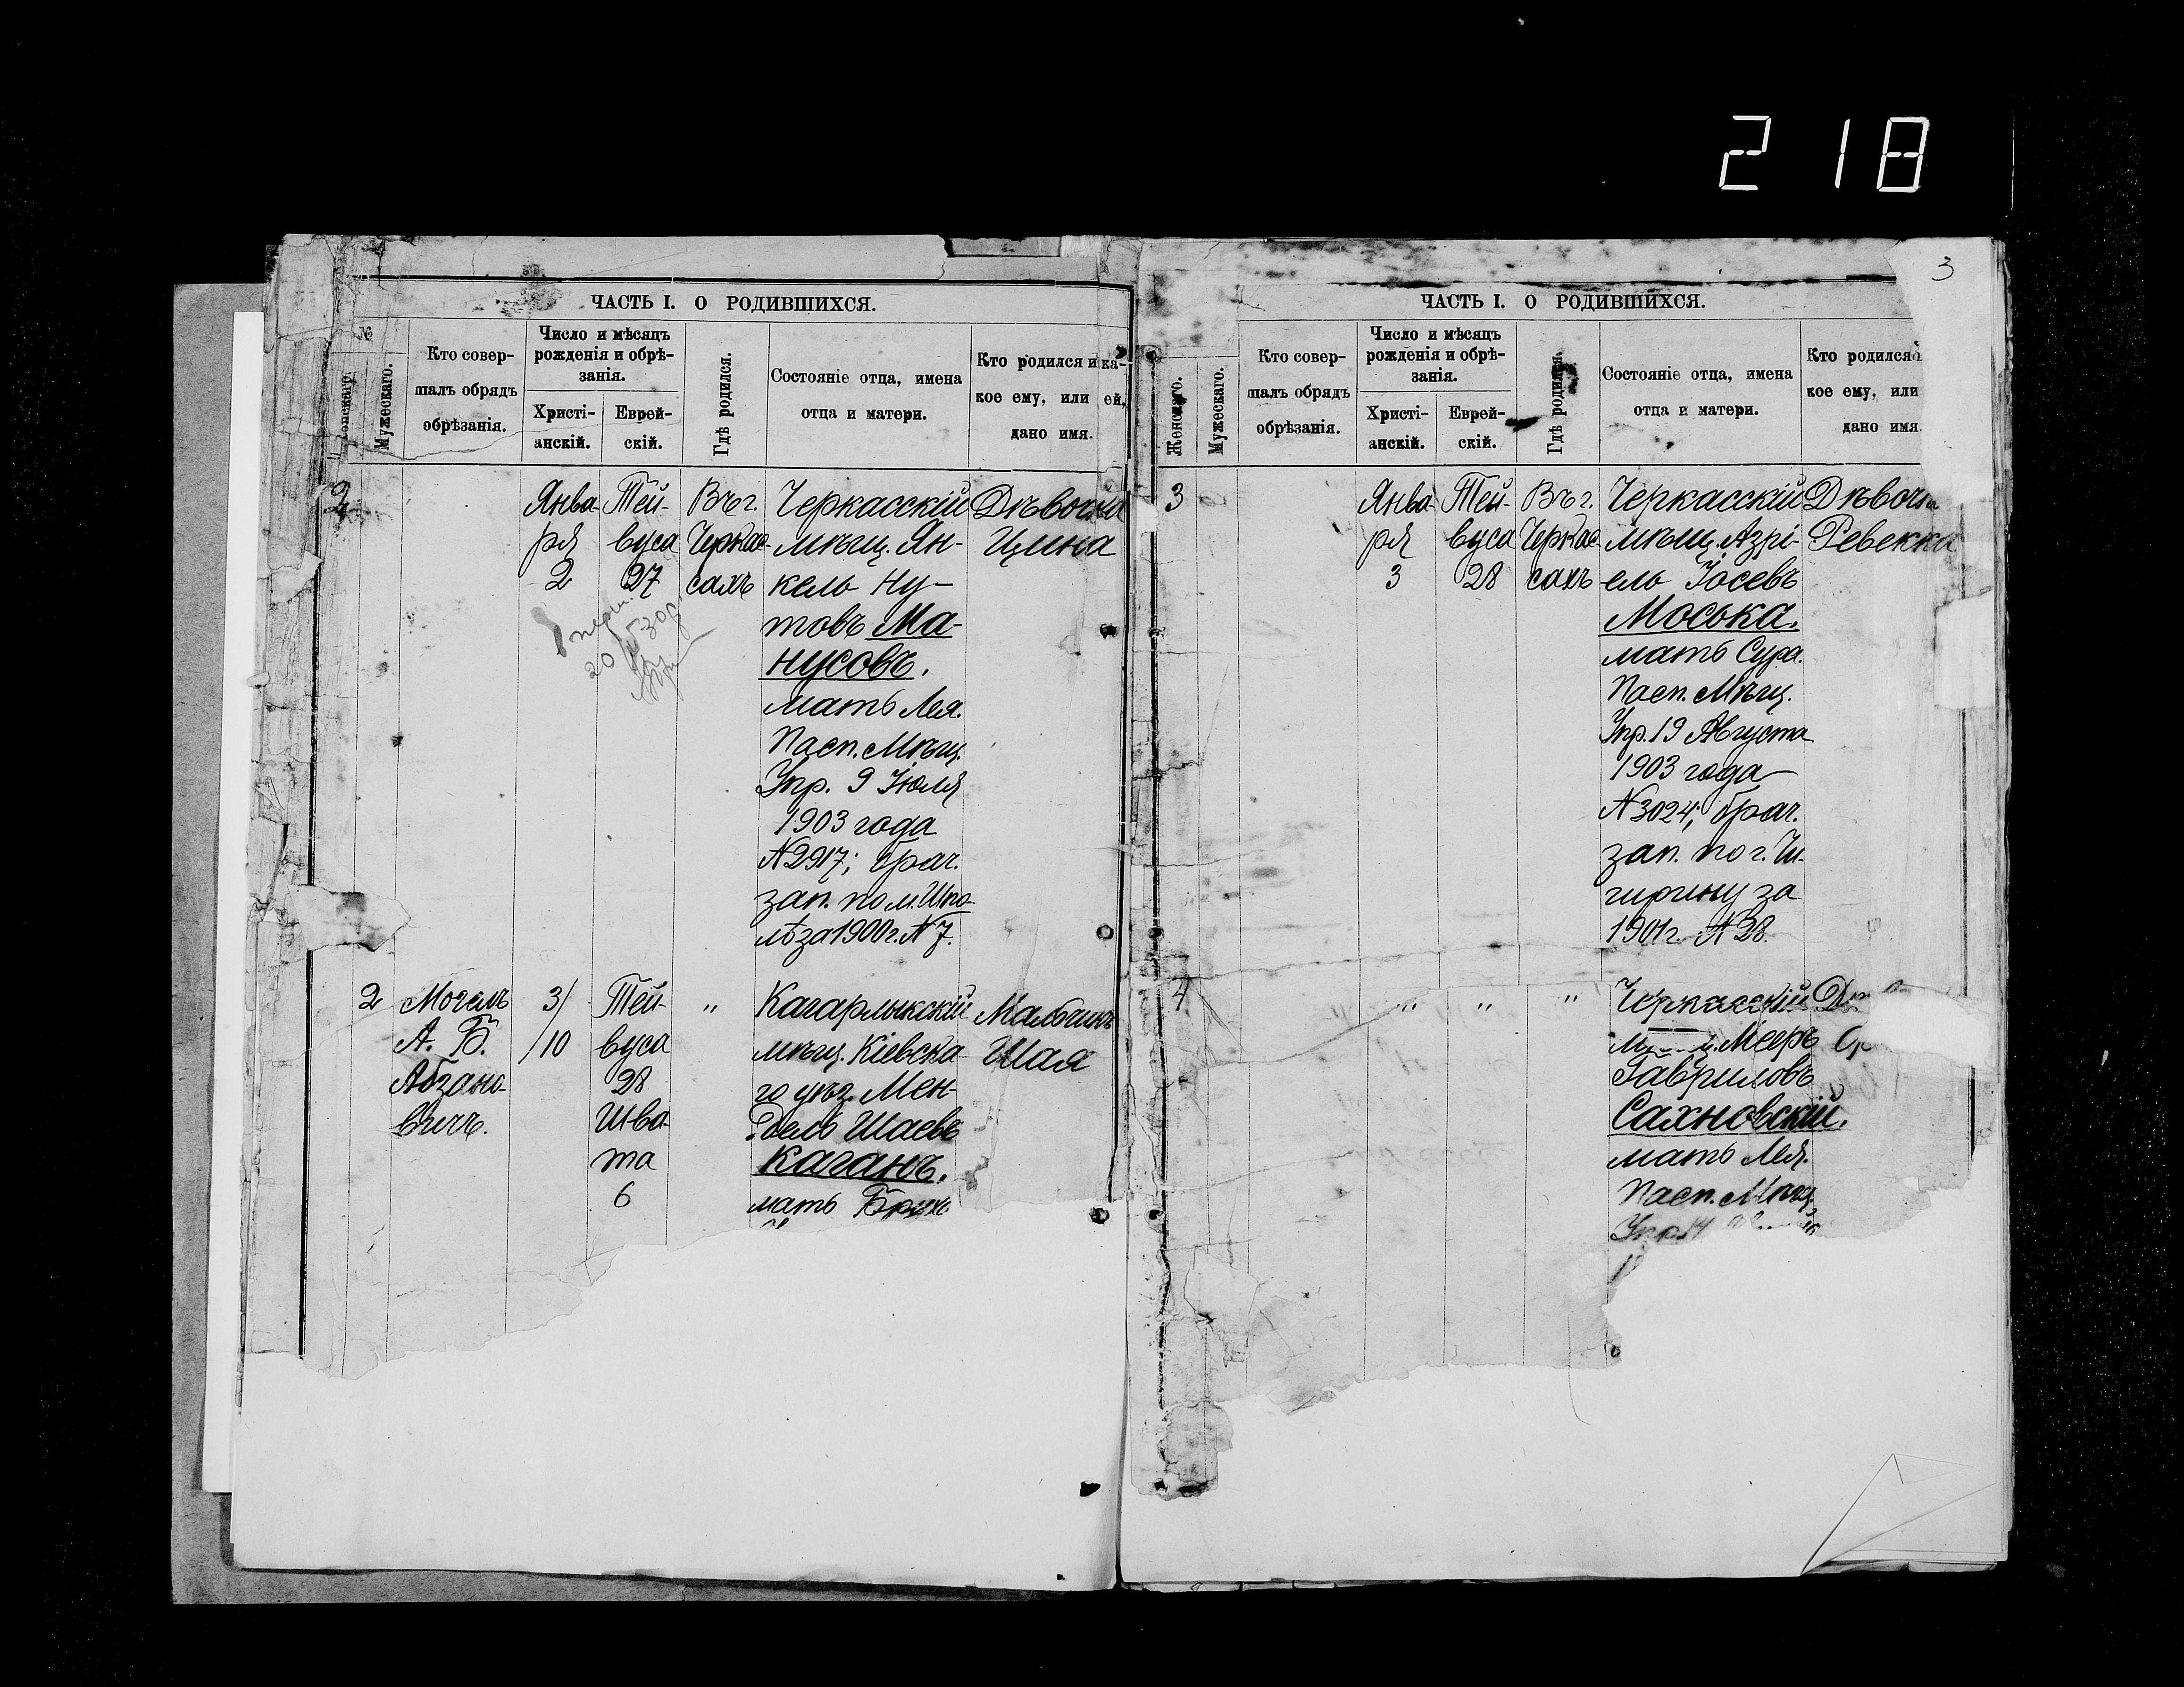 218
3
ЧАСТЬ I. О РОДИВШИХСЯ.
№
Женскаго.
Мужескаго.
Кто совер-
шалъ обрядъ
обрѣзанія.
Число и мѣсяцъ
рожденія и обрѣ-
занія.
Христі-
анскій.
Еврей-
скій.
Гдѣ родился.
Состояніе отца, имена
отца и матери.
Кто родился и ка-
кое ему, или ей,
дано имя.
2
Янва-
ря
2
Тей-
вуса
27
Въ г.
Черкас-
сахъ
Черкасскій
мѣщ. Ян-
кель Ну-
товъ Ма-
нусовъ.
мать Лея.
Пасп. Мѣщ.
Упр. 9 Іюля
1903 года
N 2917; брач.
зап. по м. Шпо-
лѣ за 1900 г. N 7.
Дѣвочка
Цина
2
Могель
А. Б.
Абзано-
вичъ.
3/
/10
Тей-
вуса
28
Шва-
та
6
"
Кагарлыкскій
мѣщ. Кіевска-
го уѣз. Мен-
дель Шаевъ
Каганъ.
мать Брух
Мальчикъ
Шая
ЧАСТЬ I. О РОДИВШИХСЯ.
Женскаго.
Мужескаго.
Кто совер-
шалъ обрядъ
обрѣзанія.
Число и мѣсяцъ
рожденія и обрѣ-
занія.
Христі-
анскій.
Еврей-
скій.
Гдѣ родился.
Состояніе отца, имена
отца и матери.
Кто родился
кое ему, или
дано имя.
3
Янва-
ря
3
Тей-
вуса
28
Въ г.
Черкас-
сахъ
Черкасскій
мѣщ. Азрі-
ель Іосевъ
Моська.
мать Сура.
Пасп. Мѣщ.
Упр. 19 Августа
1903 года
N 3024; брач.
зап. по г. Чи-
гирину за
1901 г. N 28.
Дѣвочка
Ревекка
4
"
"
"
Черкасскій
Мееръ
Гавриловъ
Сахновскій.
мать Лея.
Пасп. Мѣщ.